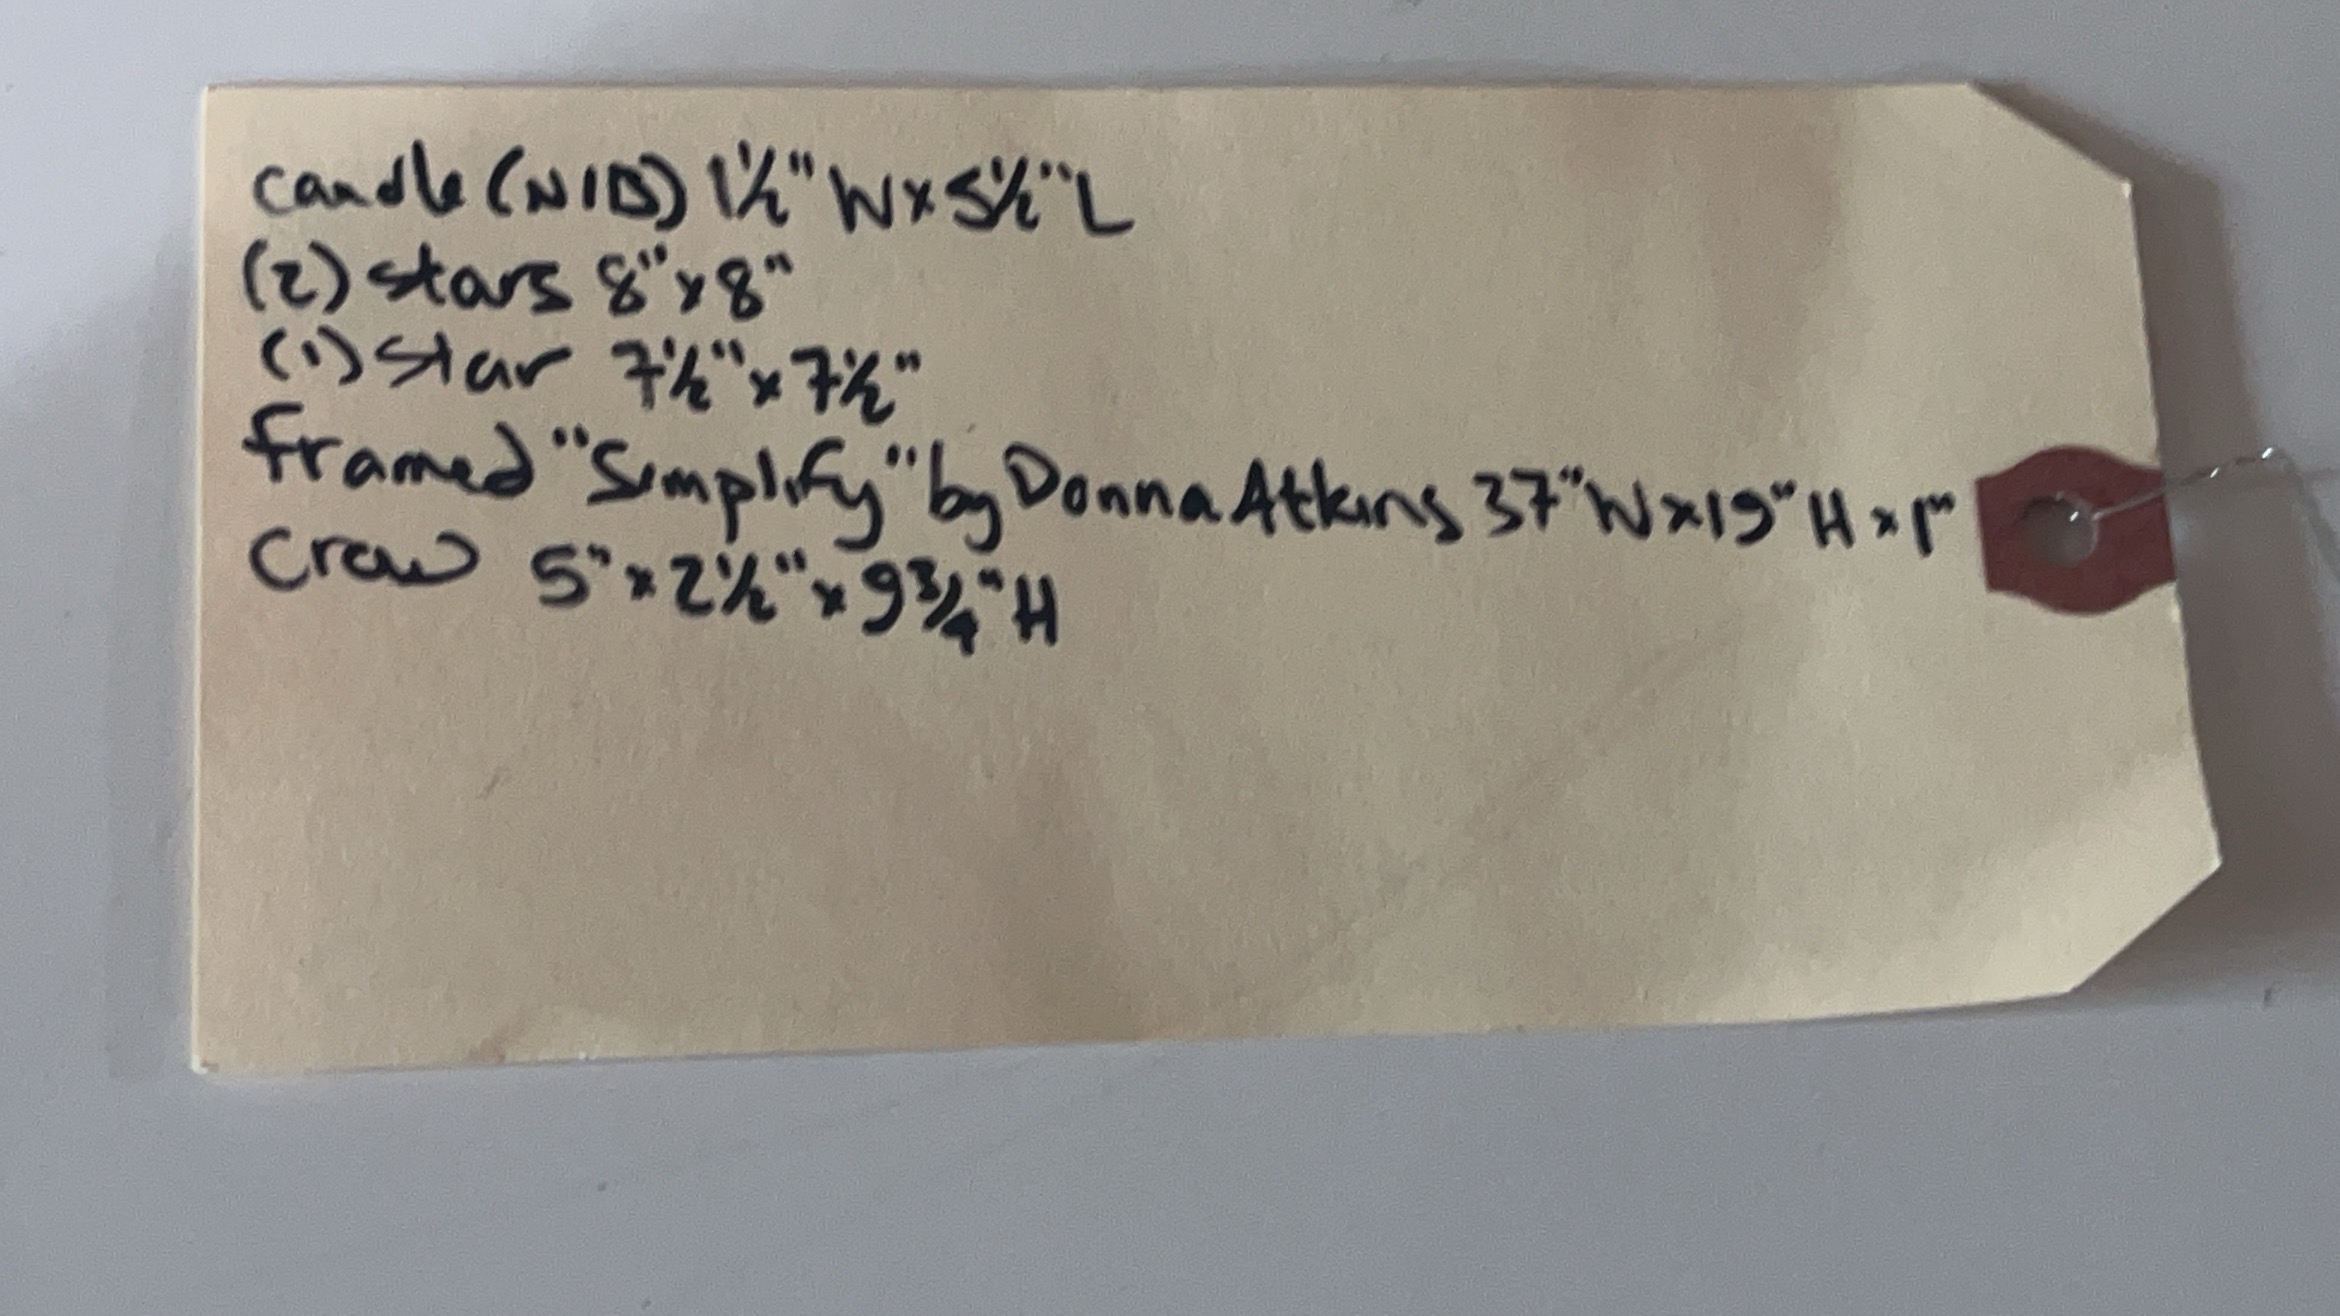 candle (NIB) 1 1/2" W x 5 1/2" L
(2) stars 8" x 8"
(1) star 7 1/2" x 7 1/2"
framed "Simplify" by Donna Atkins 37" W x 19" H x 1"
Crow 5" x 2 1/2" x 9 3/4" H